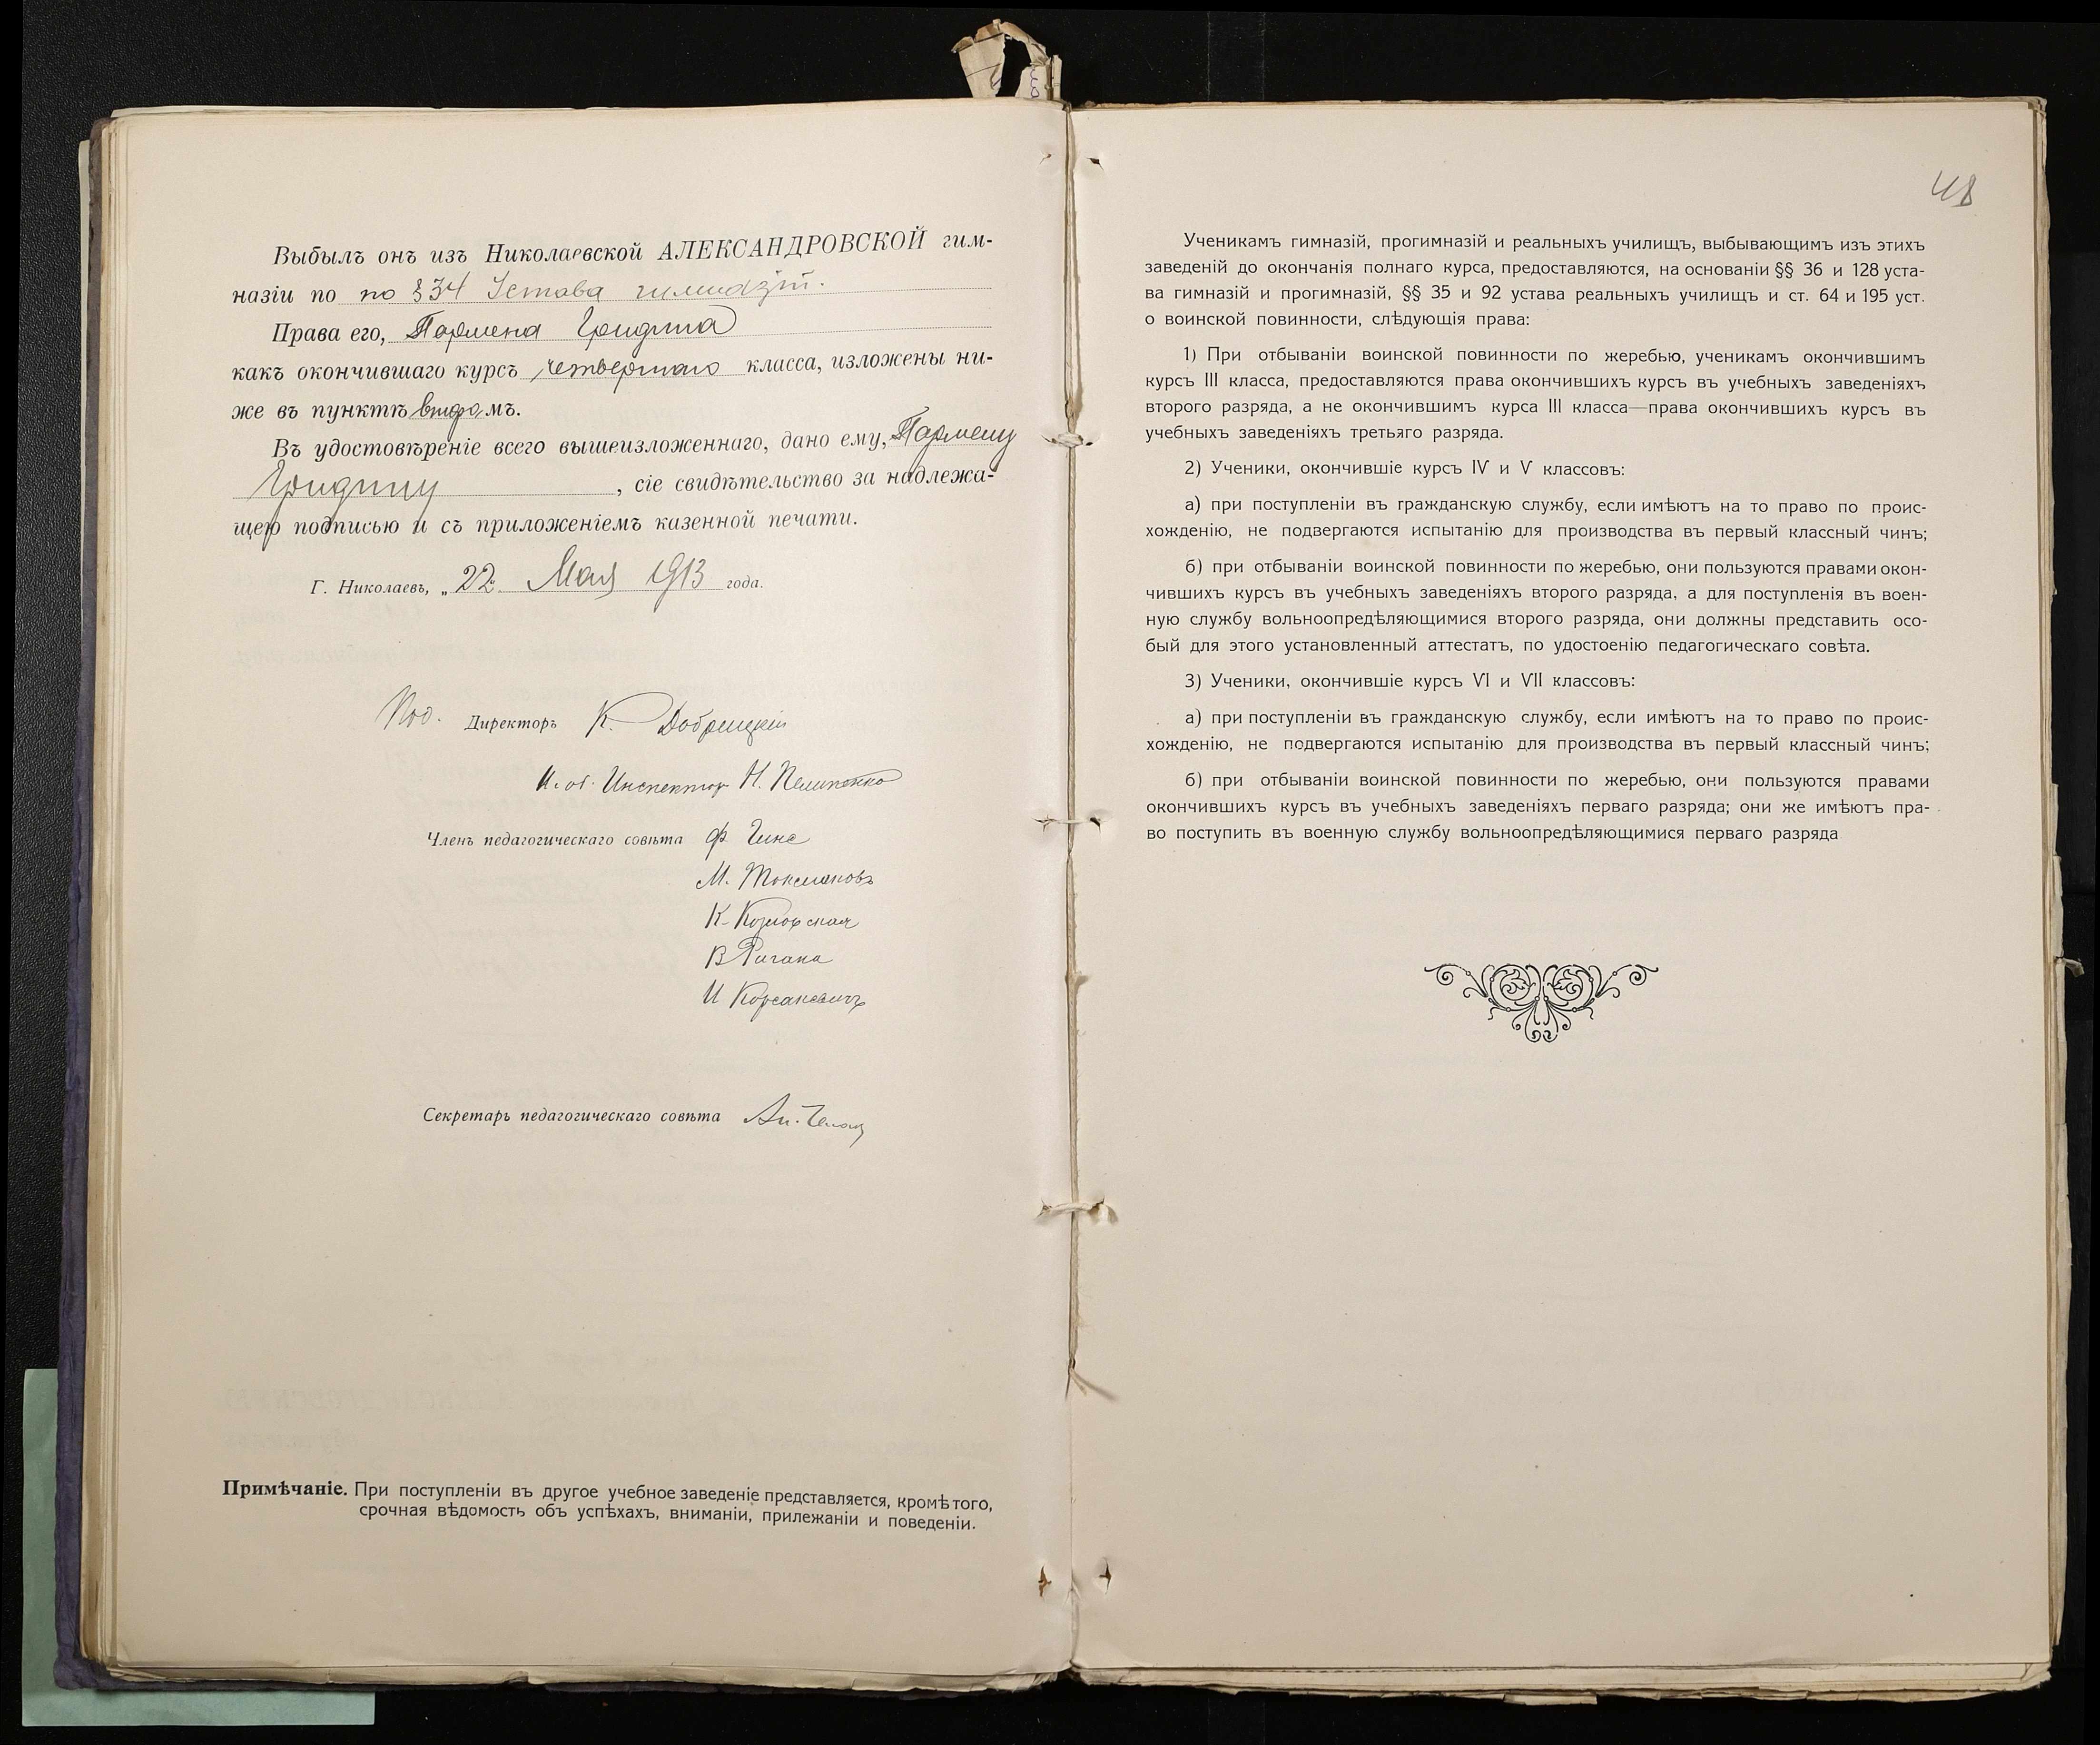 Выбылъ онъ изъ Николаевской АЛЕКСАНДРОВСКОЙ гим-
назіи по по § 34 Устава гимназій.
Права его, Пармена Гридина
какъ окончившаго курсъ четвертаго класса, изложены ни-
же въ пунктѣ второмъ.
Въ удостовѣреніе всего вышеизложеннаго, дано ему, Пармену
Гридину, сіе свидѣтельство за надлежа-
щею подписью и съ приложеніемъ казенной печати.
Г. Николаевъ, „22 Мая 1913 года.
Под. Директоръ К. Добрицкій
И. об. Инспектор Н. Пелипенко
Членъ педагогическаго совѣта Ф Гинс
М. Токмаковъ
К. Козловская
В
И Корсакевичъ
Секретарь педагогическаго совѣта
Примѣчаніе. При поступленіи въ другое учебное заведеніе представляется, кромѣ того,
срочная вѣдомость объ успѣхахъ, вниманіи, прилежаніи и поведеніи.
48
Ученикамъ гимназій, прогимназій и реальныхъ училищъ, выбывающимъ изъ этихъ
заведеній до окончанія полнаго курса, предоставляются, на основаніи §§ 36 и 128 уста-
ва гимназій и прогимназій, §§ 35 и 92 устава реальныхъ училищъ и ст. 64 и 195 уст.
о воинской повинности, слѣдующія права:
1) При отбываніи воинской повинности по жеребью, ученикамъ окончившимъ
курсъ III класса, предоставляются права окончившихъ курсъ въ учебныхъ заведеніяхъ
второго разряда, а не окончившимъ курса III класса—права окончившихъ курсъ въ
учебныхъ заведеніяхъ третьяго разряда.
2) Ученики, окончившіе курсъ IV и V классовъ:
а) при поступленіи въ гражданскую службу, если имѣютъ на то право по проис-
хожденію, не подвергаются испытанію для производства въ первый классный чинъ;
б) при отбываніи воинской повинности по жеребью, они пользуются правами окон-
чившихъ курсъ въ учебныхъ заведеніяхъ второго разряда, а для поступленія въ воен-
ную службу вольноопредѣляющимися второго разряда, они должны представить осо-
бый для этого установленный аттестатъ, по удостоенію педагогическаго совѣта.
3) Ученики, окончившіе курсъ VI и VII классовъ:
а) при поступленіи въ гражданскую службу, если имѣютъ на то право по проис-
хожденію, не подвергаются испытанію для производства въ первый классный чинъ;
б) при отбываніи воинской повинности по жеребью, они пользуются правами
окончившихъ курсъ въ учебныхъ заведеніяхъ перваго разряда; они же имѣютъ пра-
во поступить въ военную службу вольноопредѣляющимися перваго разряда